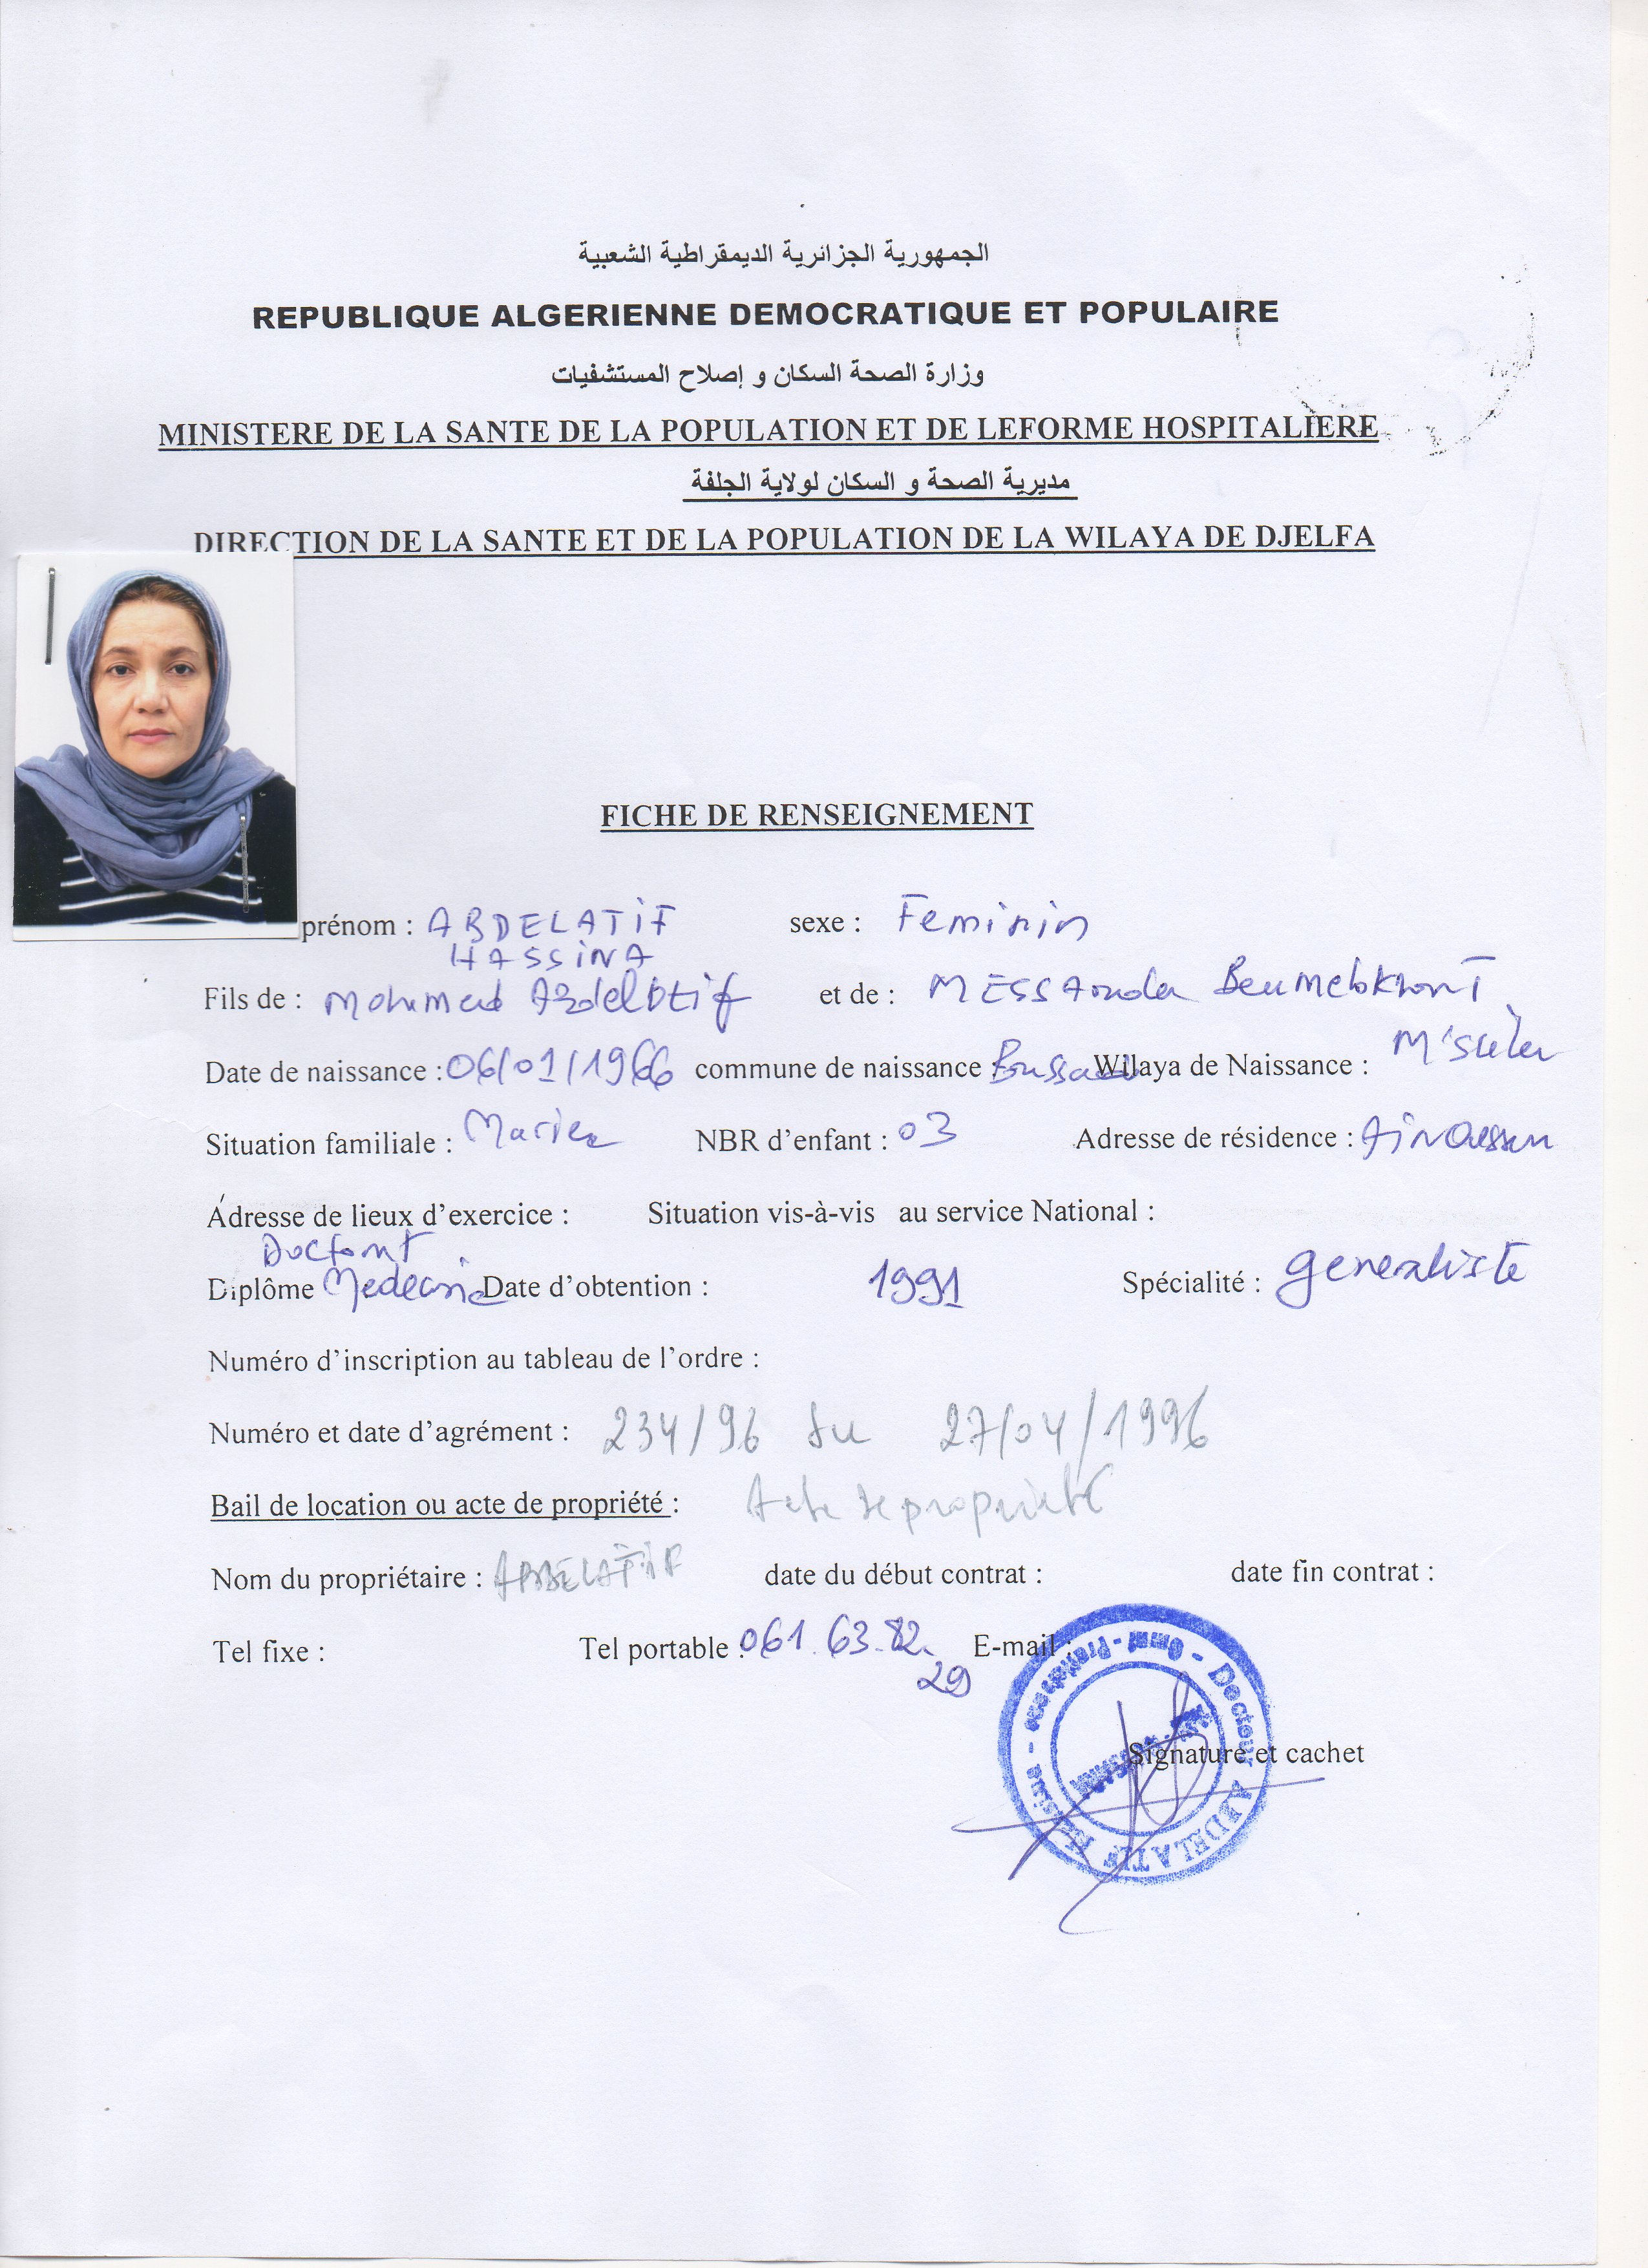 الجمهورية الجزائرية الديمقراطية الشعبية
REPUBLIQUE ALGERIENNE DEMOCRATIQUE ET POPULAIRE
وزارة الصحة السكان و إصلاح المستشفيات
MINISTERE DE LA SANTE DE LA POPULATION ET DE LEFORME HOSPITALIERE
مديرية الصحة و السكان لولاية الجلفة
DIRECTION DE LA SANTE ET DE LA POPULATION DE LA WILAYA DE DJELFA
FICHE DE RENSEIGNEMENT
prénom : ABDELATIF sexe : Feminin
HASSINA
Fils de : Mohamed Abdelatif et de : MESSAouda
Date de naissance : 06/01/1966 commune de naissance Boussaada Wilaya de Naissance : M'sila
Situation familiale : Mariée NBR d'enfant : 03 Adresse de résidence :
Adresse de lieux d'exercice : Situation vis-à-vis au service National :
Doctorat
Diplôme Medecine Date d'obtention : 1991 Spécialité : generaliste
Numéro d'inscription au tableau de l'ordre :
Numéro et date d'agrément : 234/96 du 27/04/1996
Bail de location ou acte de propriété : Acte de propriété
Nom du propriétaire : ABDELATIF date du début contrat : date fin contrat :
Tel fixe : Tel portable : 061.63.82. E-mail :
29
Signature et cachet
Docteur ABDELATIF